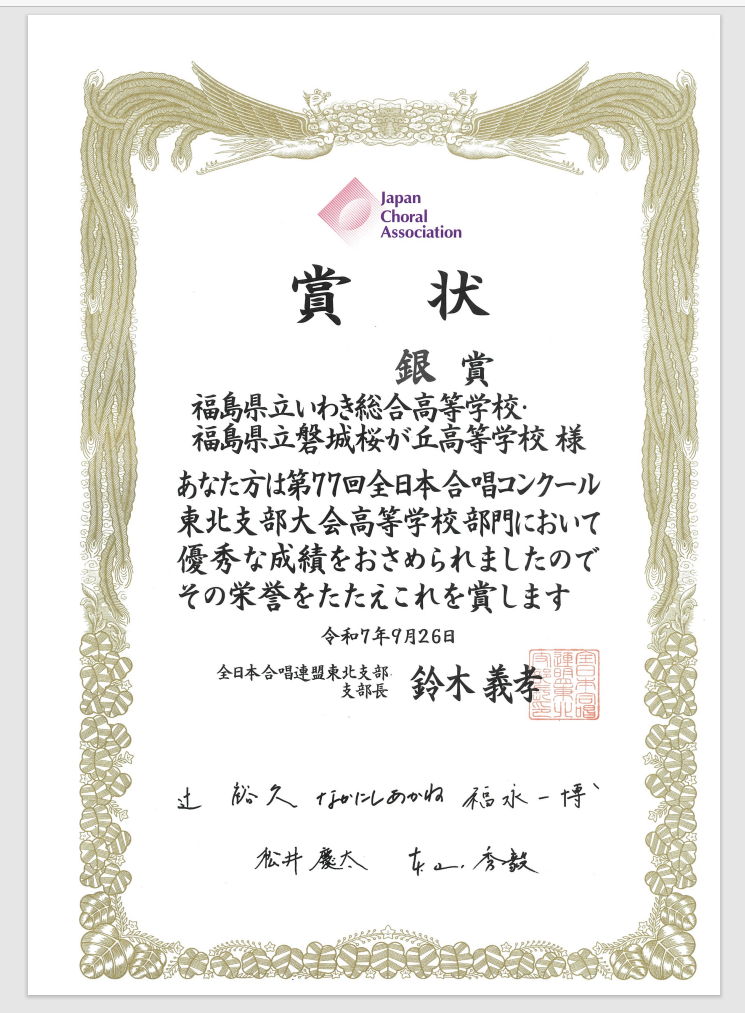 Japan
Choral
Association
賞状
銀賞
福島県立いわき総合高等学校・
福島県立磐城桜が丘高等学校 様
あなた方は第77回全日本合唱コンクール
東北支部大会高等学校部門において
優秀な成績をおさめられましたので
その栄誉をたたえこれを賞します
令和7年9月26日
全日本合唱連盟東北支部
支部長 鈴木義孝
辻 裕久 なかにしあかね 福永一博
松井慶太 秀毅